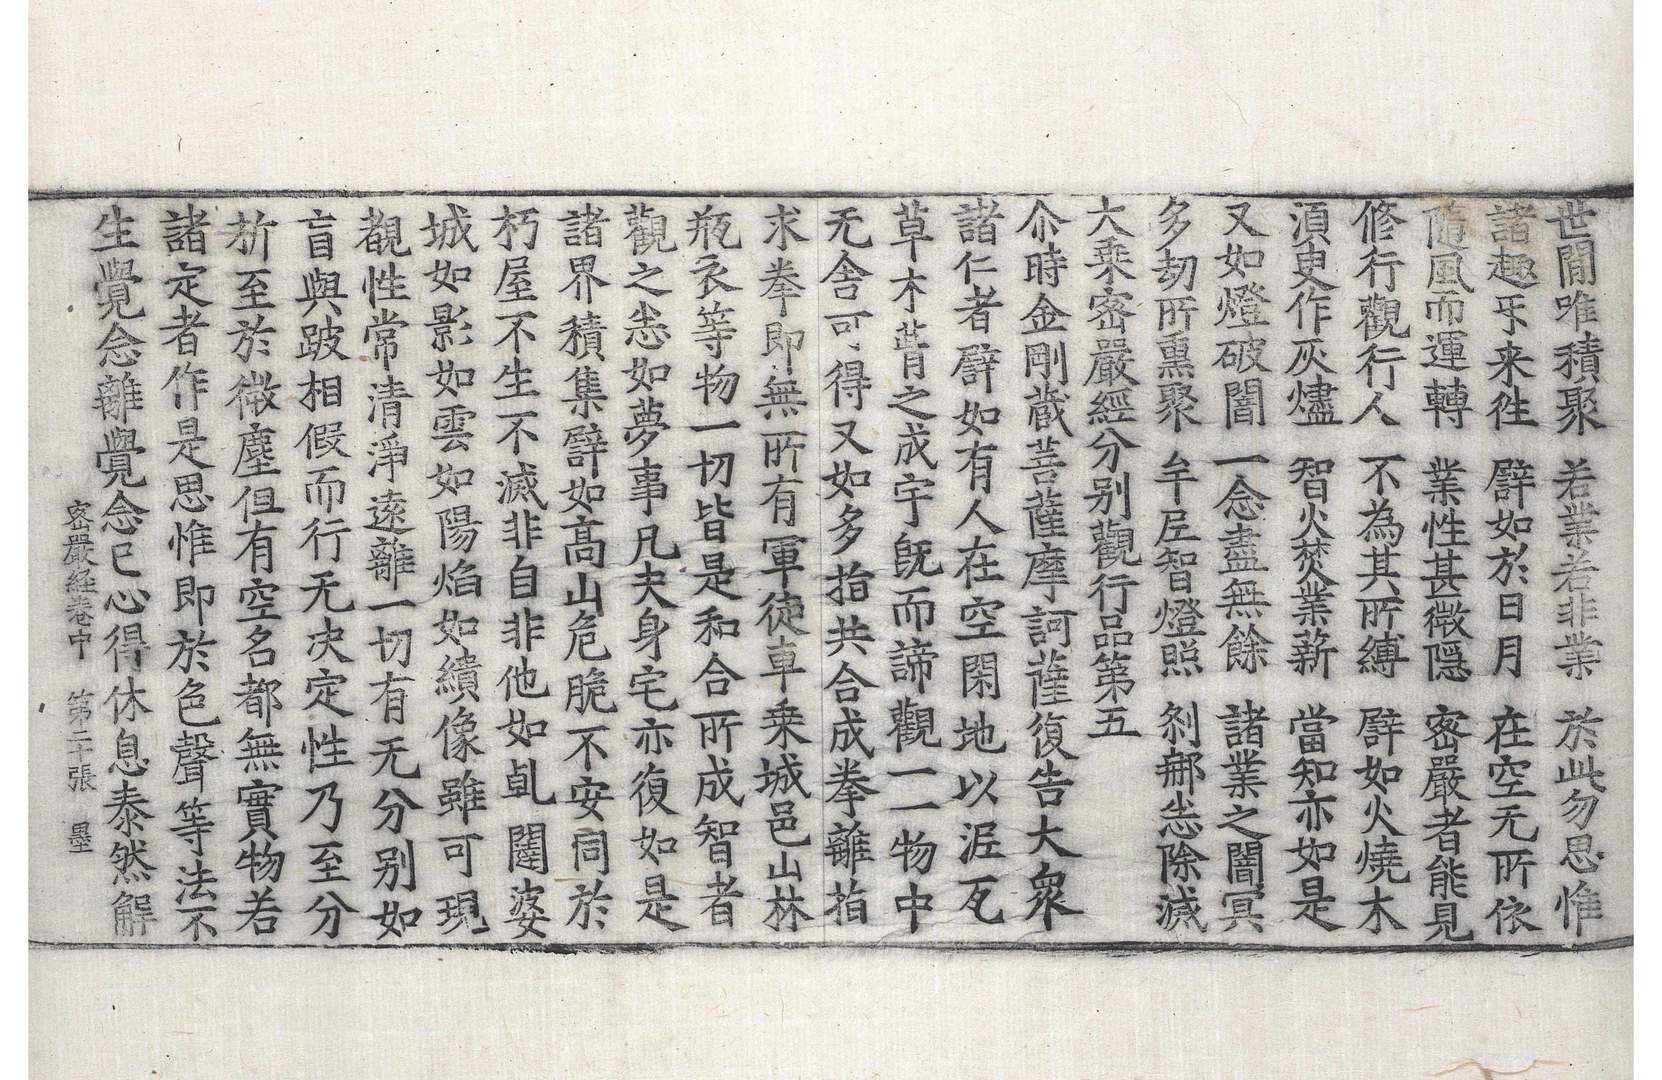 世間唯積聚 若業若非業 於此勿思惟
諸趣㸦来徃 譬如於日月 在空无所依
隨風而運轉 業性甚微隠 密嚴者能見
修行觀行人 不為其所縛 譬如火燒木
湏㬰作灰燼 智火焚業薪 當知亦如是
又如燈破闇 一念盡無餘 諸業之闇冥
多刧所熏聚 牟尼智燈照 刹那悉除滅
大乗密嚴經分別觀行品第五
尒時金剛蔵菩薩摩訶薩復告大衆
諸仁者譬如有人在空閑地以泥瓦
草木葺之成宇旣而諦觀一一物中
无舍可得又如多指共合成拳離指
求拳即無所有軍徒車乗城邑山林
瓶衣等物一切皆是和合所成智者
觀之悉如夢事凡夫身宅亦復如是
諸界積集譬如髙山危脆不安同於
朽屋不生不滅非自非他如乹闥婆
城如影如雲如陽焰如繢像雖可現
覩性常清淨逺離一切有无分别如
盲與跛相假而行无决定性乃至分
析至於微塵但有空名都無實物若
諸定者作是思惟即於色聲等法不
生覺念離覺念已心得休息泰然解
密嚴經卷中 第二十張 墨